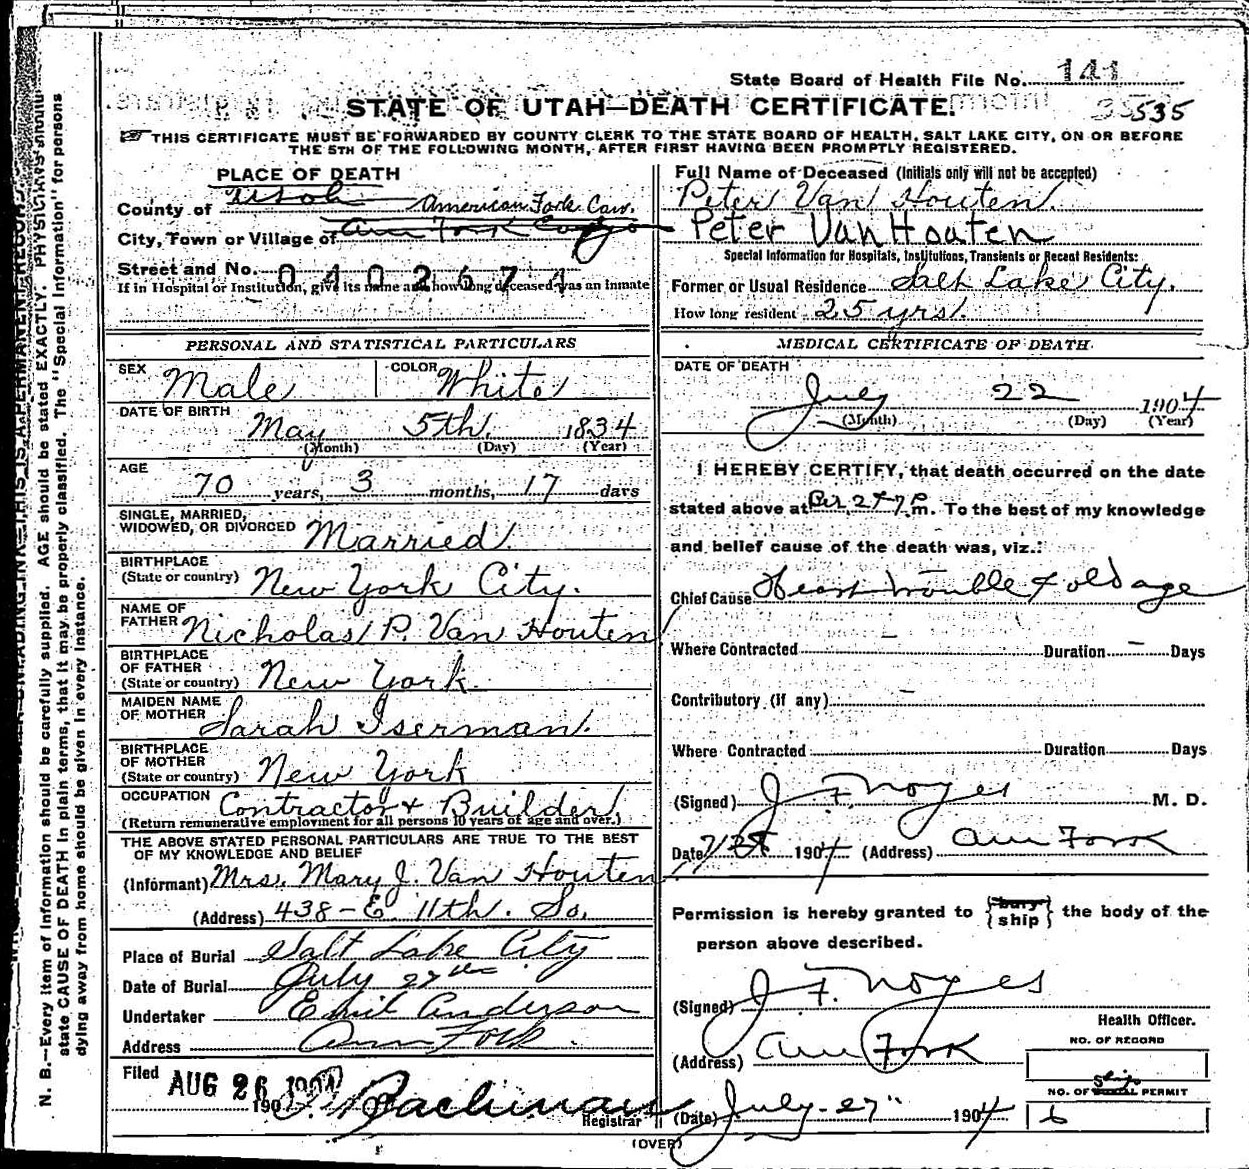 State Board of Health File No. 141
STATE OF UTAH—DEATH CERTIFICATE.
535
THIS CERTIFICATE MUST BE FORWARDED BY COUNTY CLERK TO THE STATE BOARD OF HEALTH, SALT LAKE CITY, ON OR BEFORE
THE 5TH OF THE FOLLOWING MONTH, AFTER FIRST HAVING BEEN PROMPTLY REGISTERED.
PLACE OF DEATH
County of Utah American Fork Can.
City, Town or Village of Am Fork
Street and No. 0402674
If in Hospital or Institution, give its name and how long deceased was an Inmate
Full Name of Deceased (Initials only will not be accepted)
Peter Van Houten.
Peter Van Houten
Special Information for Hospitals, Institutions, Transients or Recent Residents:
Former or Usual Residence Salt Lake City.
How long resident 25 yrs.
PERSONAL AND STATISTICAL PARTICULARS
SEX Male COLOR White
DATE OF BIRTH
May 5th 1834
(Month) (Day) (Year)
AGE
70 years, 3 months, 17 days
SINGLE, MARRIED,
WIDOWED, OR DIVORCED Married.
BIRTHPLACE
(State or country) New York City.
NAME OF
FATHER Nicholas P. Van Houten
BIRTHPLACE
OF FATHER
(State or country) New York.
MAIDEN NAME
OF MOTHER Sarah Iserman.
BIRTHPLACE
OF MOTHER
(State or country) New York
OCCUPATION Contractor & Builder
(Return remunerative employment for all persons 10 years of age and over.)
THE ABOVE STATED PERSONAL PARTICULARS ARE TRUE TO THE BEST
OF MY KNOWLEDGE AND BELIEF
(Informant) Mrs. Mary J. Van Houten
(Address) 438-E. 11th. So.
Place of Burial Salt Lake City
Date of Burial July 27th
Undertaker Emil Anderson
Address Am Fork.
Filed AUG 26 1904
190
Registrar
MEDICAL CERTIFICATE OF DEATH
DATE OF DEATH
July 22 1904
(Month) (Day) (Year)
I HEREBY CERTIFY, that death occurred on the date
stated above at m. To the best of my knowledge
and belief cause of the death was, viz.:
Chief Cause Heart trouble & old age
Where Contracted – Duration – Days
Contributory (if any) –
Where Contracted Duration Days
(Signed) J. F. Noyes M. D.
Date 1904 (Address) Am Fork
Permission is hereby granted to {bury ship} the body of the
person above described.
(Signed) J. F. Noyes
Health Officer.
(Address) Am Fork
NO. OF RECORD
NO. OF Ship BURIAL PERMIT
6
(Date) July-27" 1904
(OVER)
N. B.—Every item of information should be carefully supplied. AGE should be stated EXACTLY. PHYSICIANS should
state CAUSE OF DEATH in plain terms, that it may be properly classified. The "Special Information" for persons
dying away from home should be given in every instance.